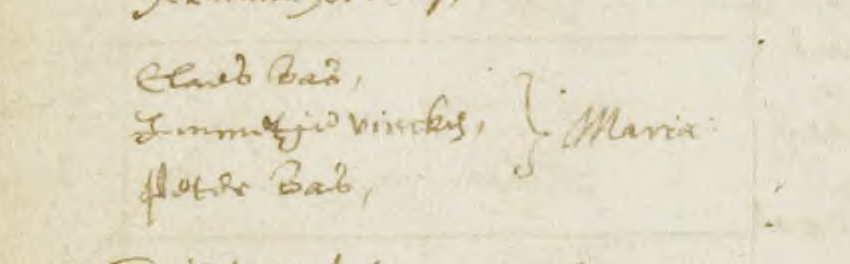 Claes Bas,
Jmmetjen vincken, } Maria
Peter Bas,